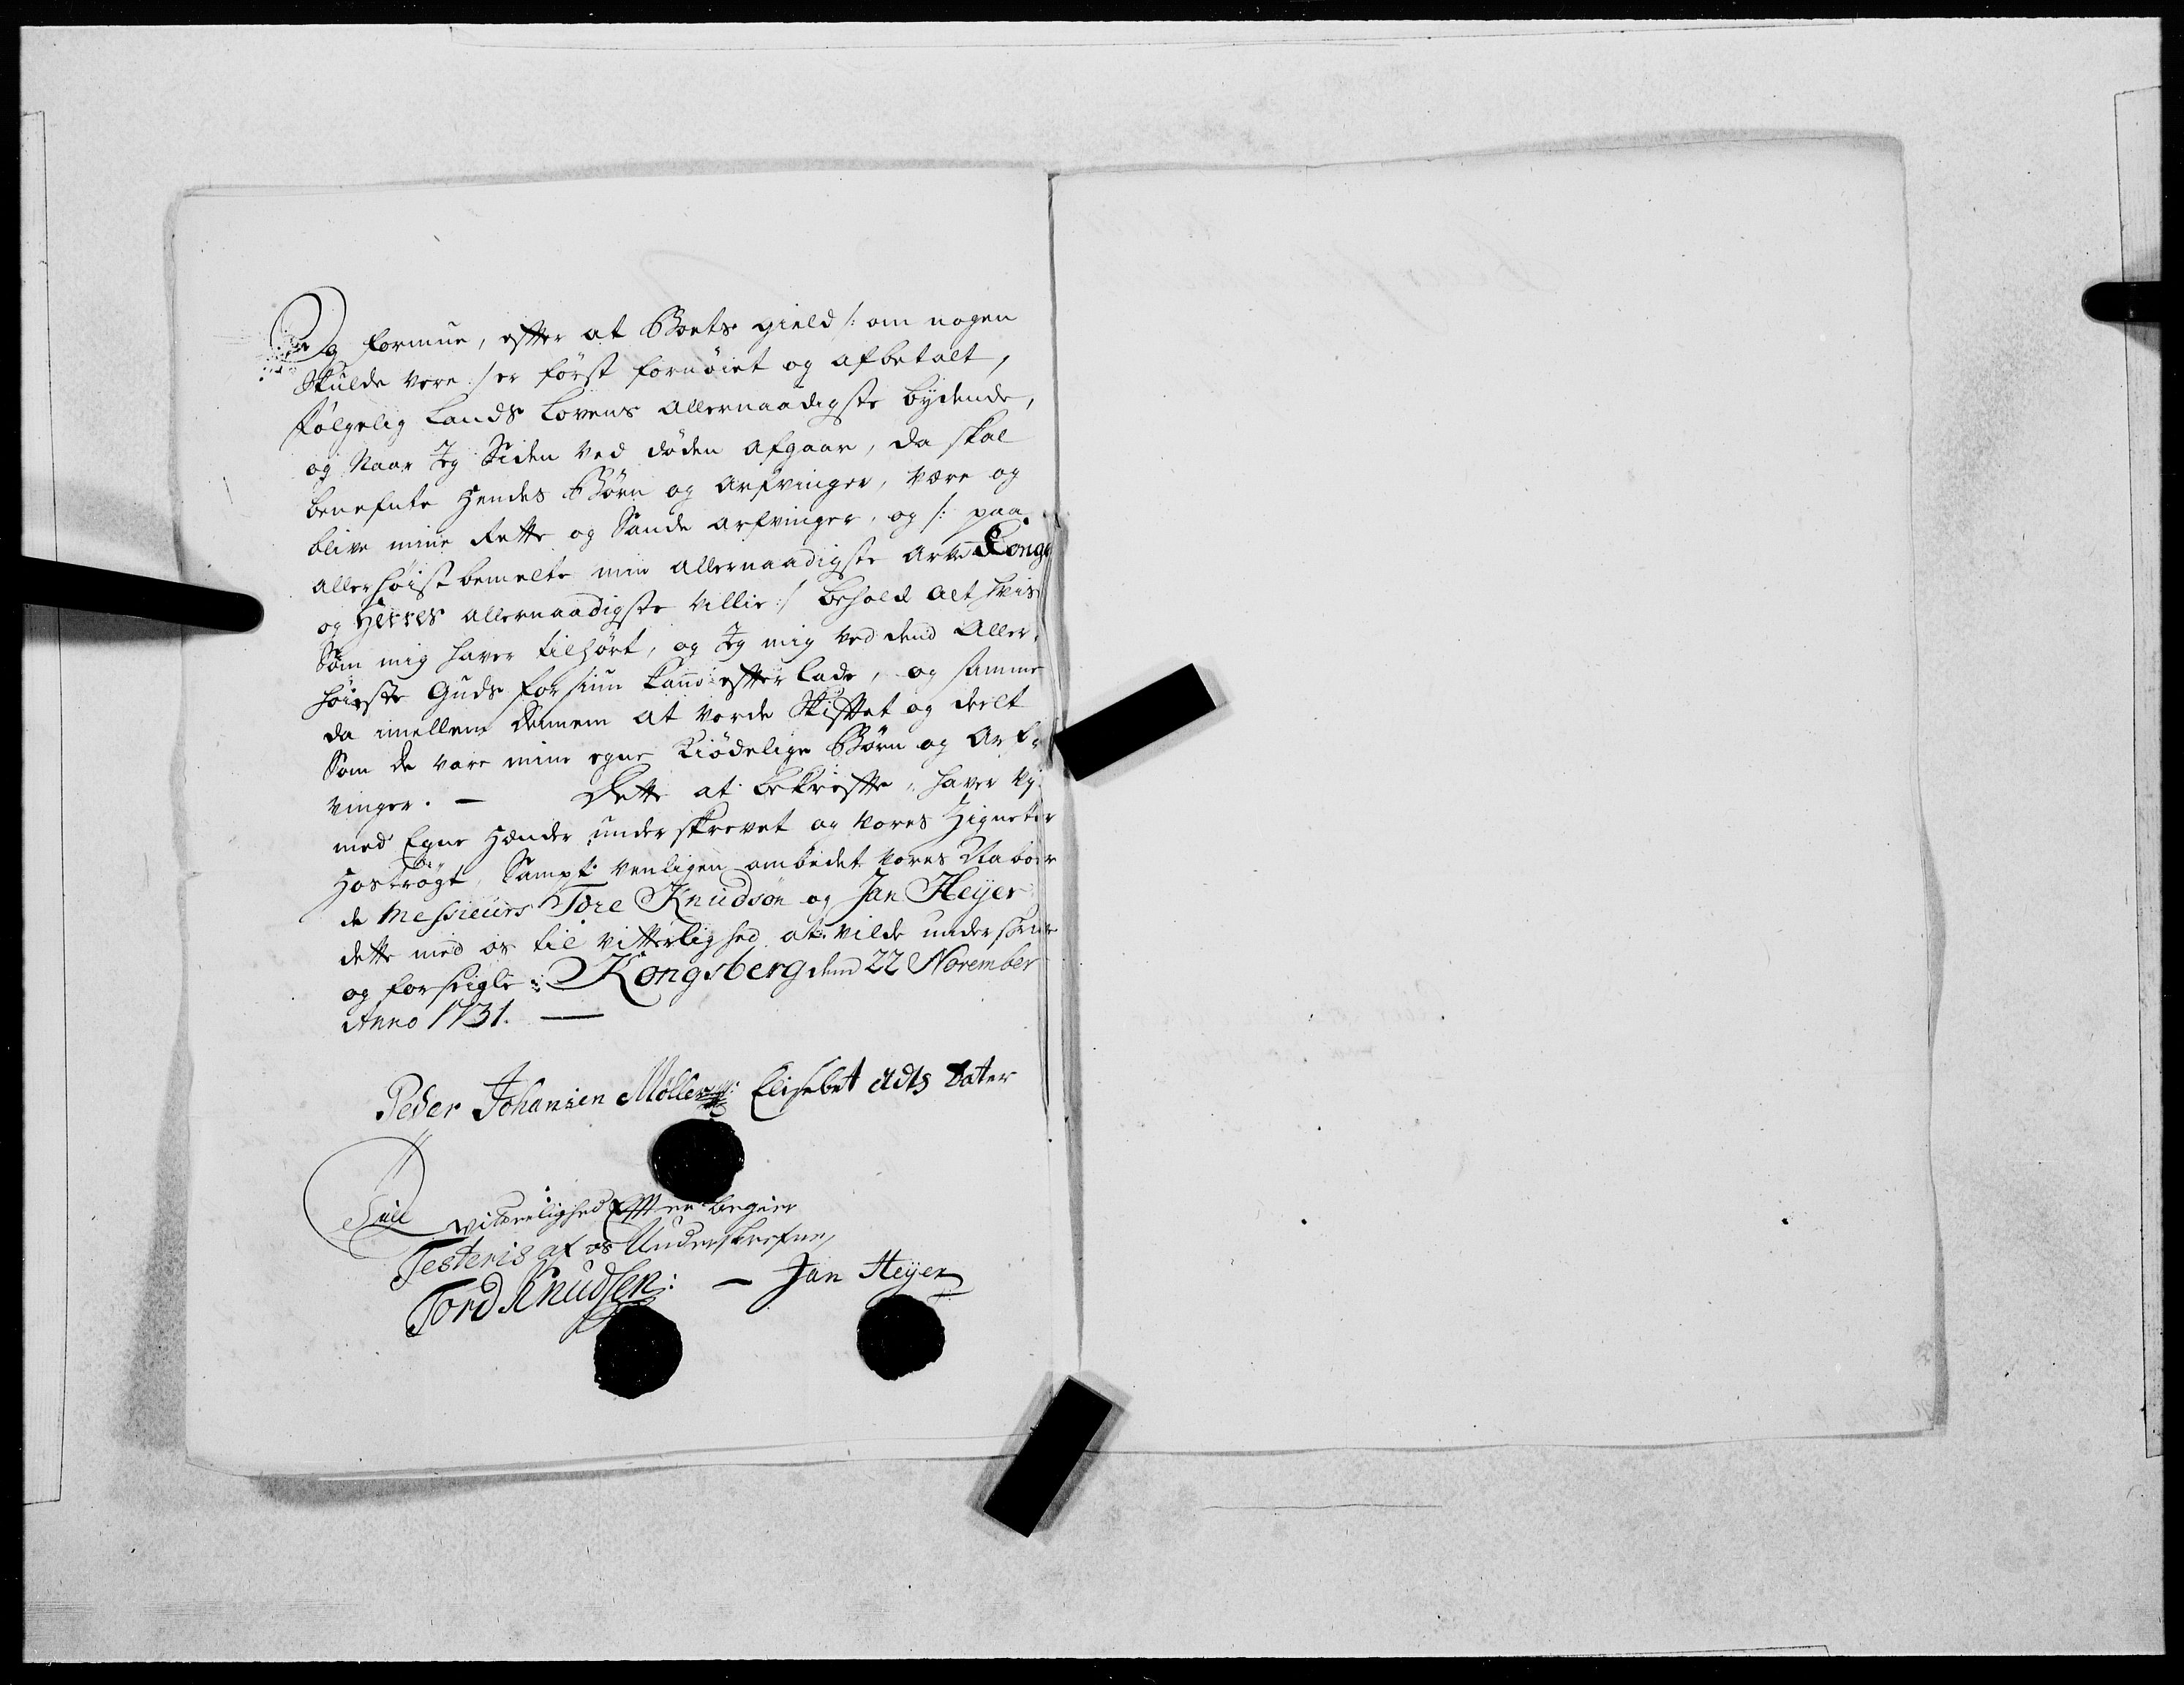 Og formue, efter at Boets gield /: om nogen
Skulde vere :/ er först fornöiet og afbetalt,
følgelig Lands Lovens allernaadigste bydende,
og Naar Jeg Siden ved döden afgaar, da skal
benefnte Hendes Börn og arfvinger, være og
blive mine Rette og Sande arfvinger, og /: paa
allerhöistbemelte min allernaadigste arve Kongs
og Herres allernaadigste villie :/ Behold alt hvis
Som mig haver tilhört, og Jeg mig ved dend Aller-
höieste Guds forsiun kand efterlade, og samme
da imellem dennem at vorde Skiftet og deelt
Som de vare mine egne Kiödelige Börn og Arf-
vinger. — Dette at bekrefte, haver vj
med Egne Hænder underskrevet og vores Zigneter
Hoströgt, Sampt venligen ombedet vores Naboer
de Messieurs Tore Knudsøn og Jan Heÿer
dette med os til vitterlighed at vilde underskrive
og forseigle: Kongsberg dend 22 November
Anno 1731. —
Peder Johansen Møller Elisebet Adts Dater
Till vitterlighed Efter begier
Testeris af os Underskrefne,
Tord Knudsen: — Jan Heÿer